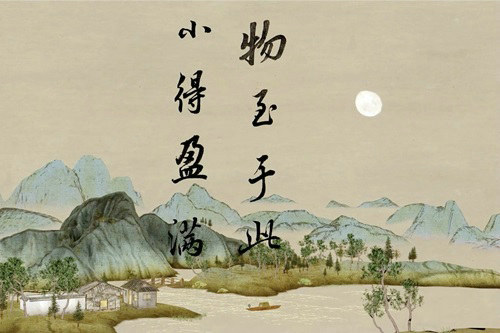 物至于此
小得盈满